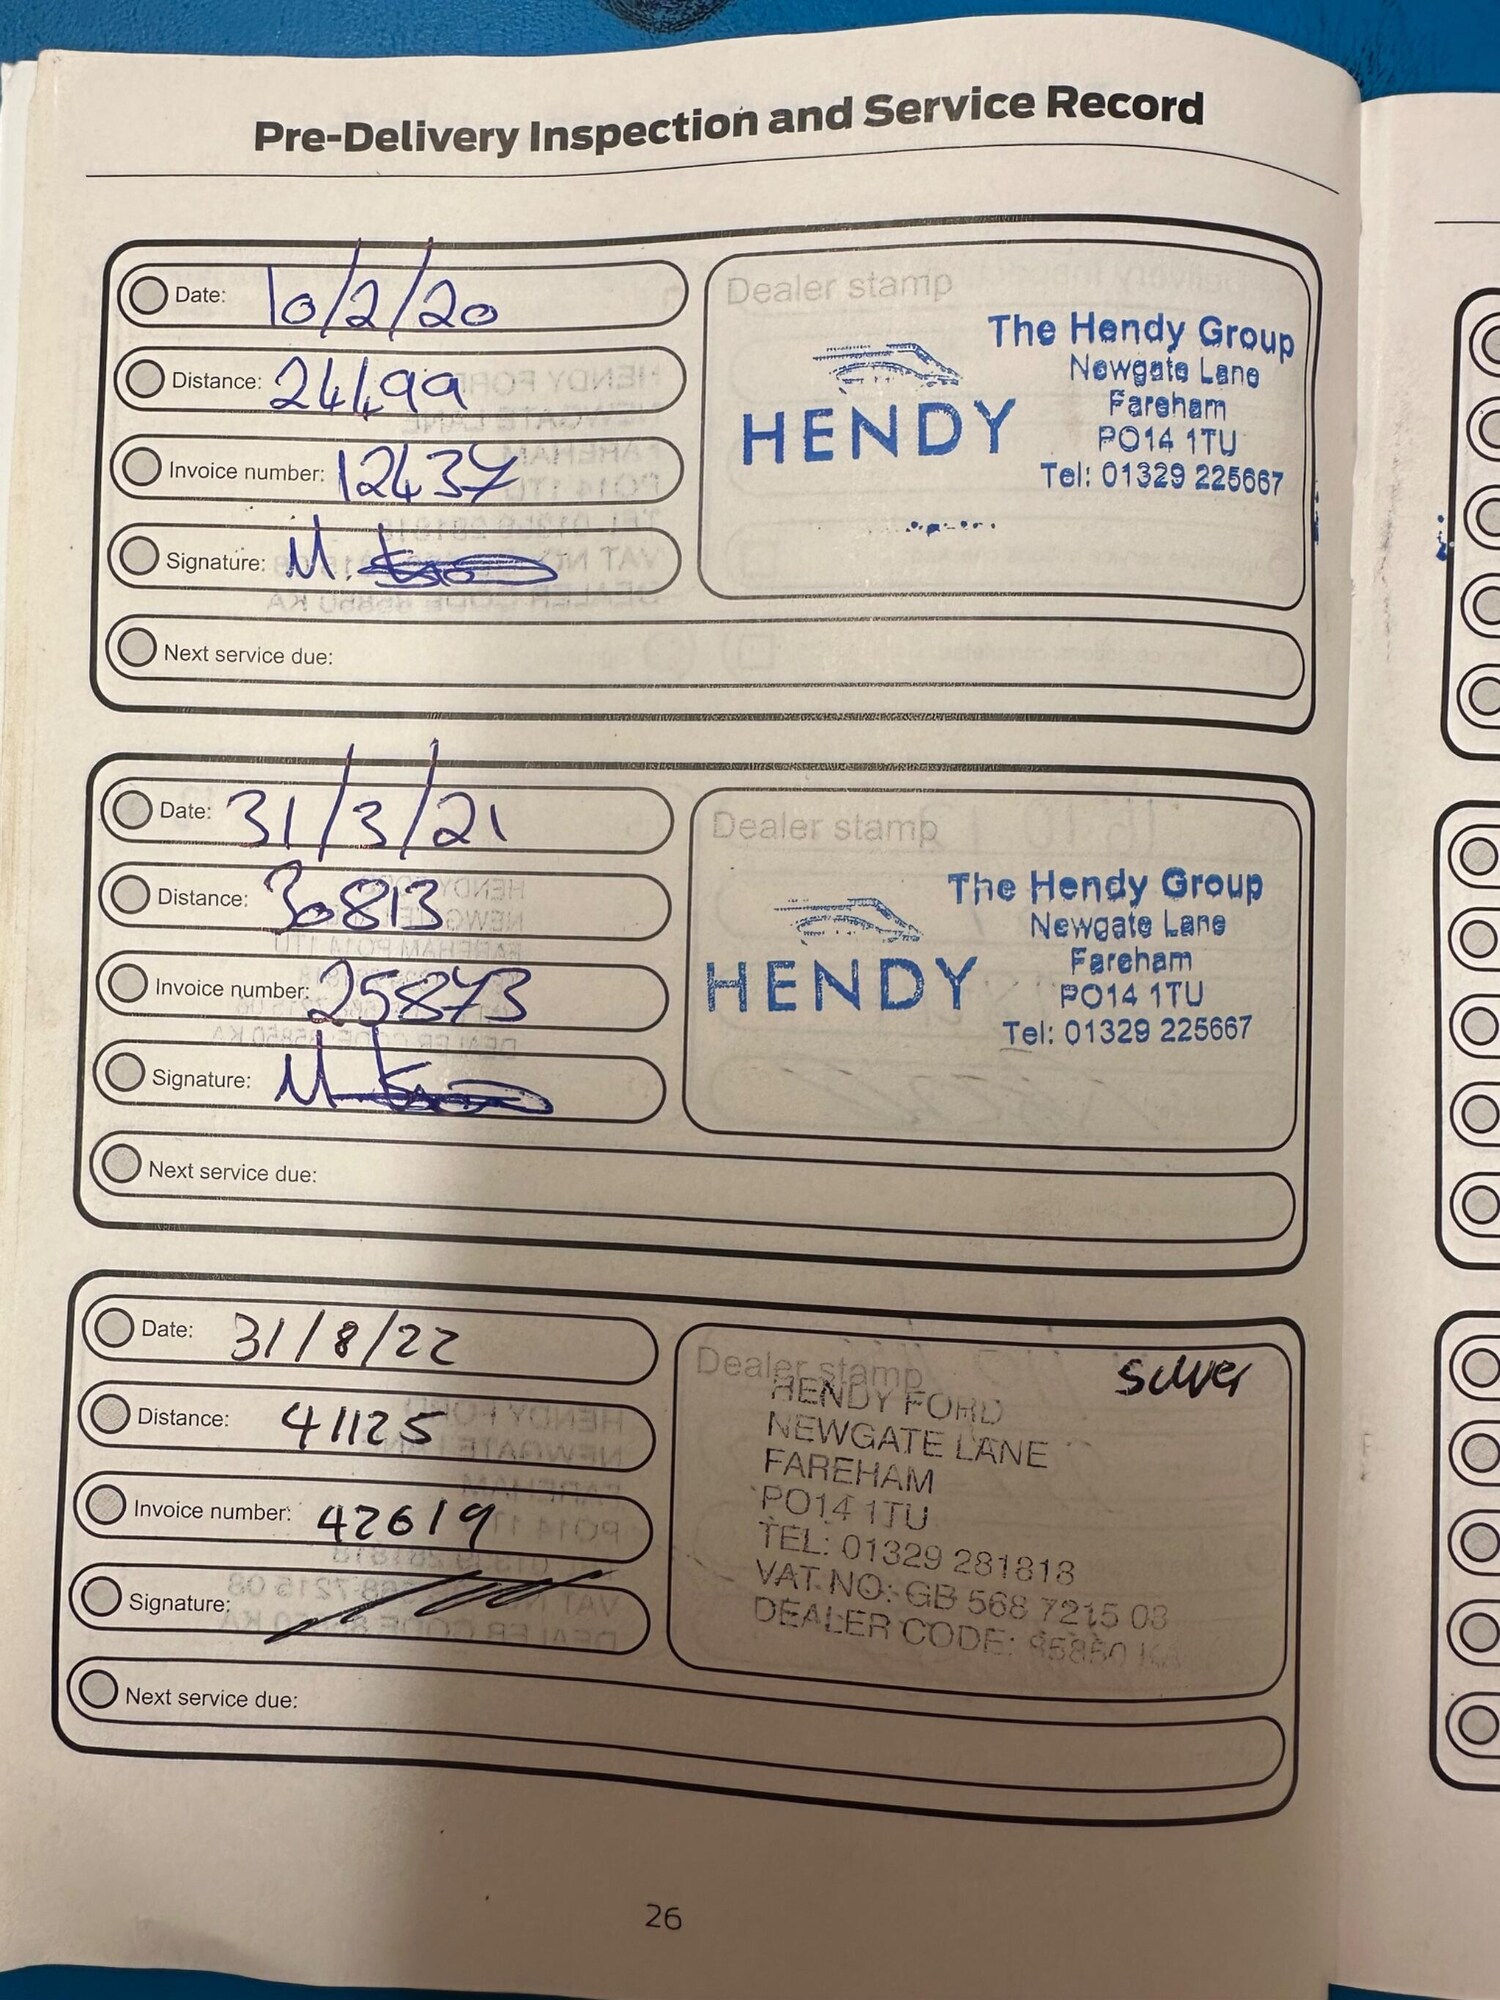 Pre-Delivery Inspection and Service Record
Date: 10/2/20
Distance: 24499
Invoice number: 12437
Signature: M.
Next service due:
Dealer stamp
HENDY
The Hendy Group
Newgate Lane
Fareham
PO14 1TU
Tel: 01329 225667
Date: 31/3/21
Distance: 30813
Invoice number: 25873
Signature: M
Next service due:
Dealer stamp
HENDY
The Hendy Group
Newgate Lane
Fareham
PO14 1TU
Tel: 01329 225667
Date: 31/8/22
Distance: 41125
Invoice number: 42619
Signature:
Next service due:
Dealer stamp
Silver
HENDY FORD
NEWGATE LANE
FAREHAM
PO14 1TU
TEL: 01329 281818
VAT NO: GB 568 7215 08
DEALER CODE: 85850 KA
26